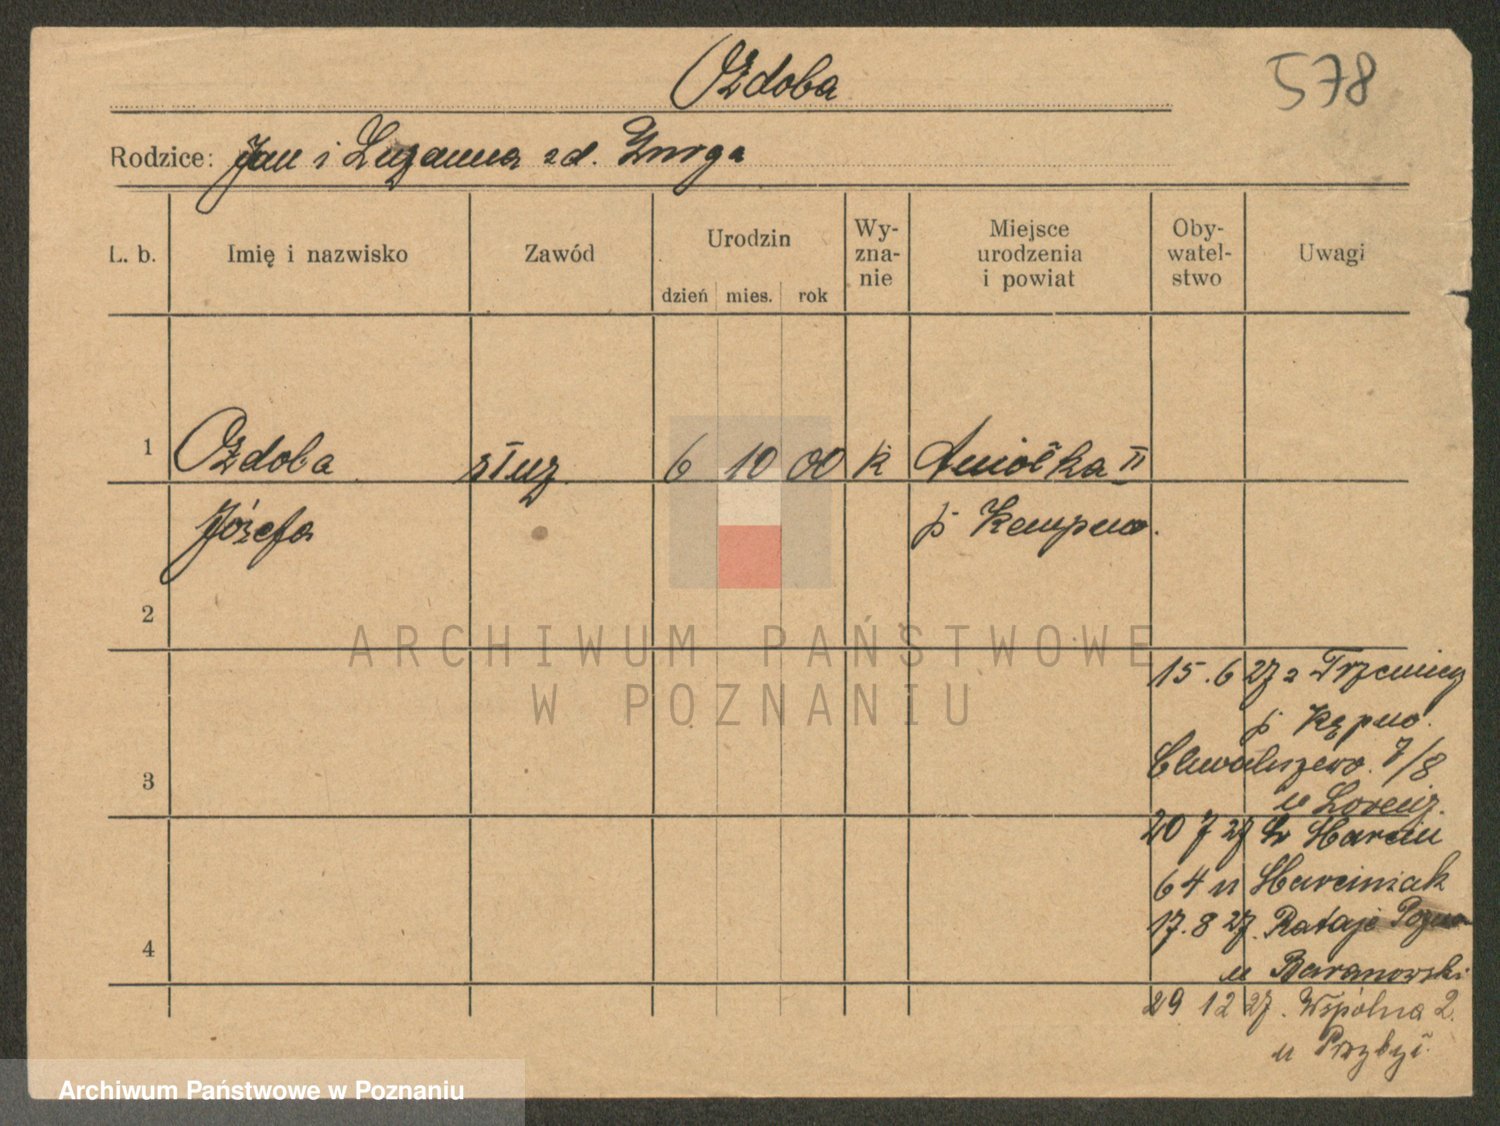 Ozdoba
578
Rodzice: Jan i Zuzanna zd. Gurga
L. b.
Imię i nazwisko
Zawód
Urodzin
dzień mies. rok
Wy-
zna-
nie
Miejsce
urodzenia
i powiat
Oby-
watel-
stwo
Uwagi
1 Ozdoba służ. 6 10 00 k Aniołka II
Józefa p Kempno.
2
ARCHIWUM PAŃSTWOWE
W POZNANIU
15.6 27 z Trzcinicy
p Kępno.
3 Chwaliszewo 7/8
u
20 7 27 Marcin
64 u Marciniak
17.8 27. Rataje
4
u Baranowski
29 12 27. Wspólna 2.
u Przybył.
Archiwum Państwowe w Poznaniu